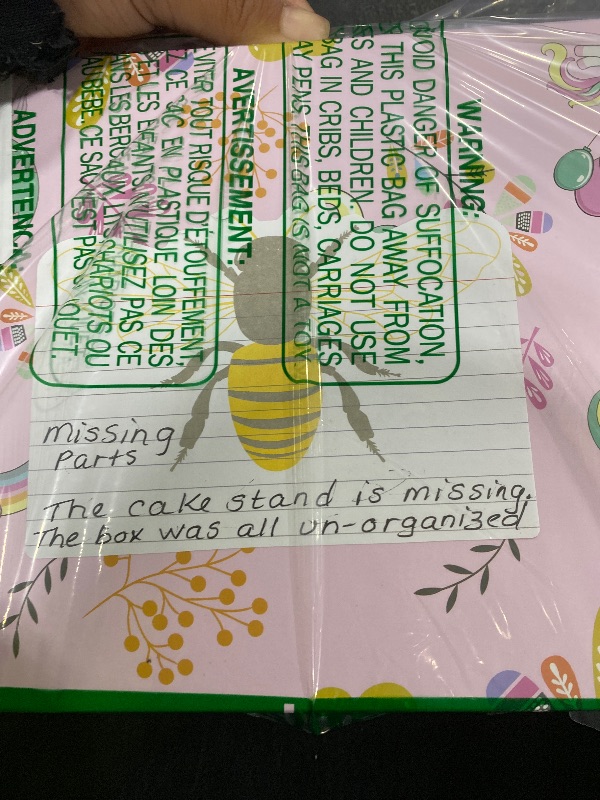 WARNING:
AVOID DANGER OF SUFFOCATION,
THIS PLASTIC BAG AWAY FROM
AND CHILDREN. DO NOT USE
BAG IN CRIBS, BEDS, CARRIAGES
PENS. THIS BAG IS NOT A TOY.
AVERTISSEMENT:
ÉVITER TOUT RISQUE D'ÉTOUFFEMENT
CE EN PLASTIQUE LOIN DES
ET LES ENFANTS. N'UTILISEZ PAS CE
DANS LES
CHARIOTS OU
BÉBÉ. CE SAC N'EST PAS UN JOUET.
missing
Parts
The cake stand is missing.
The box was all un-organized